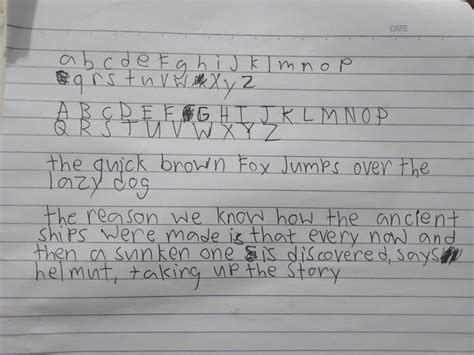 DATE
a b c d e f g h i J k l m n o p
q r s t u v w x y z
A B C D E F G H I J K L M N O P
Q R S T U V W X Y Z
the quick brown Fox Jumps over the
lazy dog
the reason we know how the ancient
ships were made is that every now and
then a sunken one is discovered, says
helmut, taking up the story